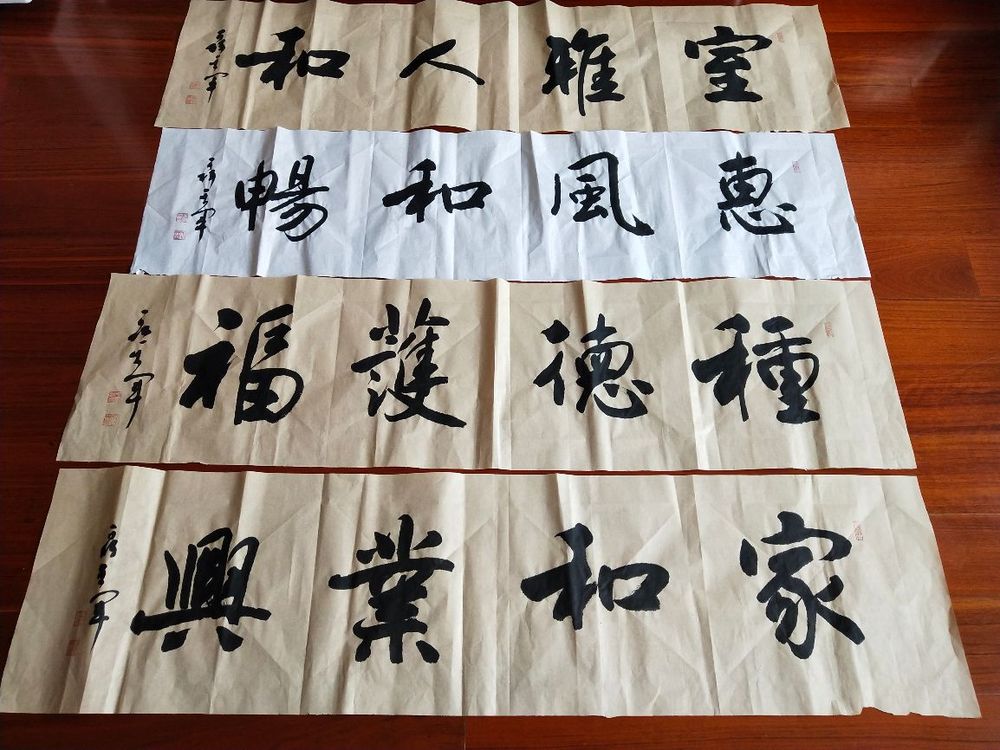 室雅人和
惠風和暢
種德護福
家和業興